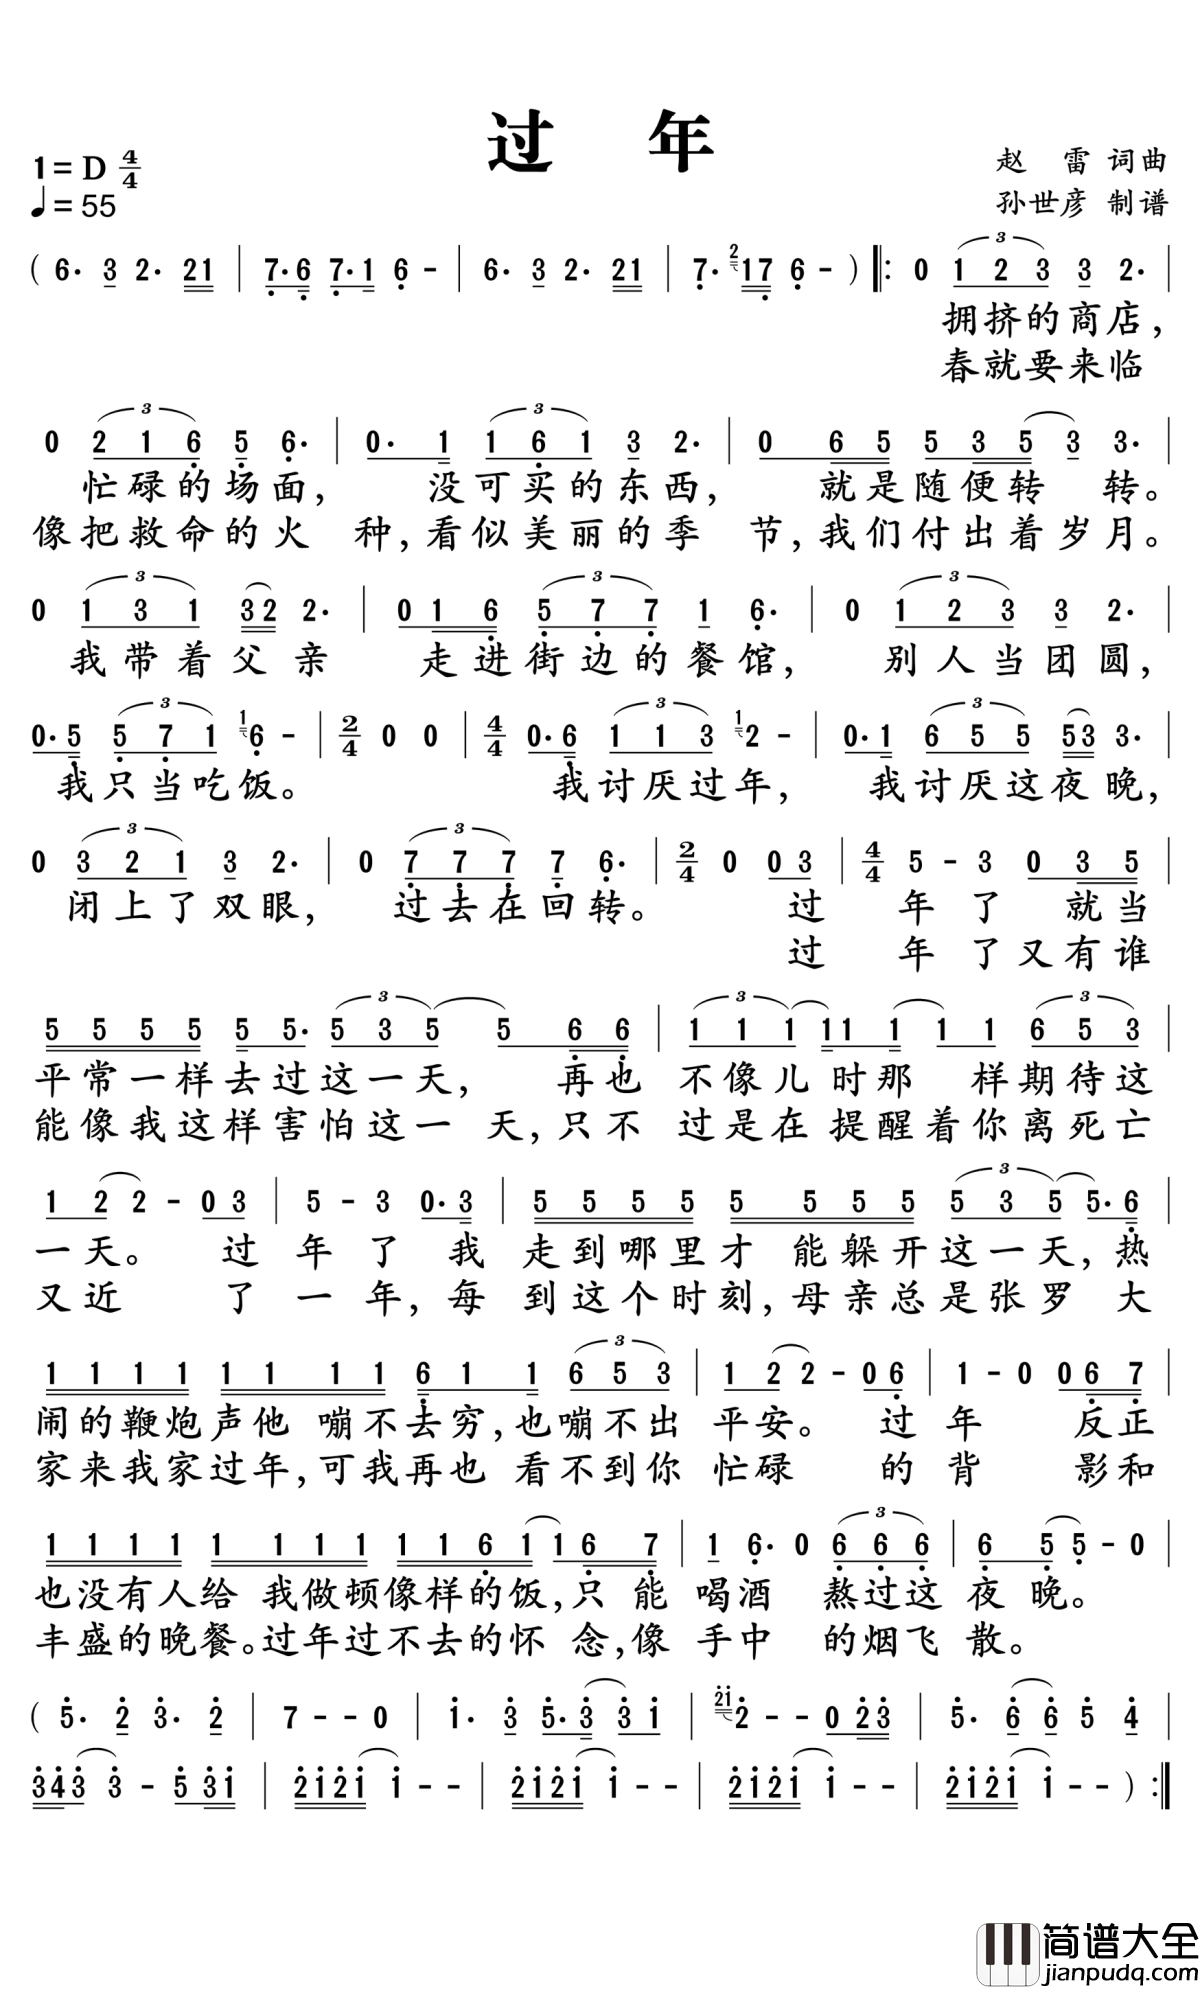 过 年
1=D 4/4
♩=55
赵 雷 词曲
孙世彦 制谱
( 6· 3 2· 21 | 7· 6 7· 1 6 - | 6· 3 2· 21 | 7· 2 17 6 - ) ‖: 0 1 2 3 3 2· |
拥挤的商店,
春就要来临
0 2 1 6 5 6· | 0· 1 1 6 1 3 2· | 0 6 5 5 3 5 3 3· |
忙碌的场面, 没可买的东西, 就是随便转 转。
像把救命的火 种,看似美丽的季 节,我们付出着岁月。
0 1 3 1 32 2· | 0 1 6 5 7 7 1 6· | 0 1 2 3 3 2· |
我带着父亲 走进街边的餐馆, 别人当团圆,
0· 5 5 7 1 1 6 - | 2/4 0 0 | 4/4 0· 6 1 1 3 1 2 - | 0· 1 6 5 5 53 3· |
我只当吃饭。 我讨厌过年, 我讨厌这夜晚,
0 3 2 1 3 2· | 0 7 7 7 7 6· | 2/4 0 0 3 | 4/4 5 - 3 0 3 5 |
闭上了双眼, 过去在回转。 过 年了 就当
过 年了又有谁
5 5 5 5 5 5· 5 3 5 5 6 6 | 1 1 1 11 1 1 1 6 5 3 |
平常一样去过这一天, 再也 不像儿时那 样期待这
能像我这样害怕这一 天,只不 过是在提醒着你离死亡
1 2 2 - 0 3 | 5 - 3 0· 3 | 5 5 5 5 5 5 5 5 5 3 5 5· 6 |
一天。 过 年 了 我 走到哪里才 能躲开这一天,热
又近 了 一 年,每 到这个时刻,母亲总是张罗 大
1 1 1 1 1 1 1 1 6 1 1 6 5 3 | 1 2 2 - 0 6 | 1 - 0 0 6 7 |
闹的鞭炮声他 嘣不去穷,也嘣不出 平安。 过 年 反正
家来我家过年,可我再也 看不到你 忙碌 的 背 影和
1 1 1 1 1 1 1 1 1 1 6 1 1 6 7 | 1 6· 0 6 6 6 | 6 5 5 - 0 |
也没有人给 我做顿像样的饭,只 能 喝酒 熬过这 夜 晚。
丰盛的晚餐。过年过不去的怀 念,像 手中 的烟飞 散。
( 5· 2 3· 2 | 7 - - 0 | 1· 3 5· 3 3 1 | 21 2 - - 0 23 | 5· 6 6 5 4 |
343 3 - 5 31 | 2121 1 - - | 2121 1 - - | 2121 1 - - | 2121 1 - - ) :‖
简谱大全
jianpudq.com